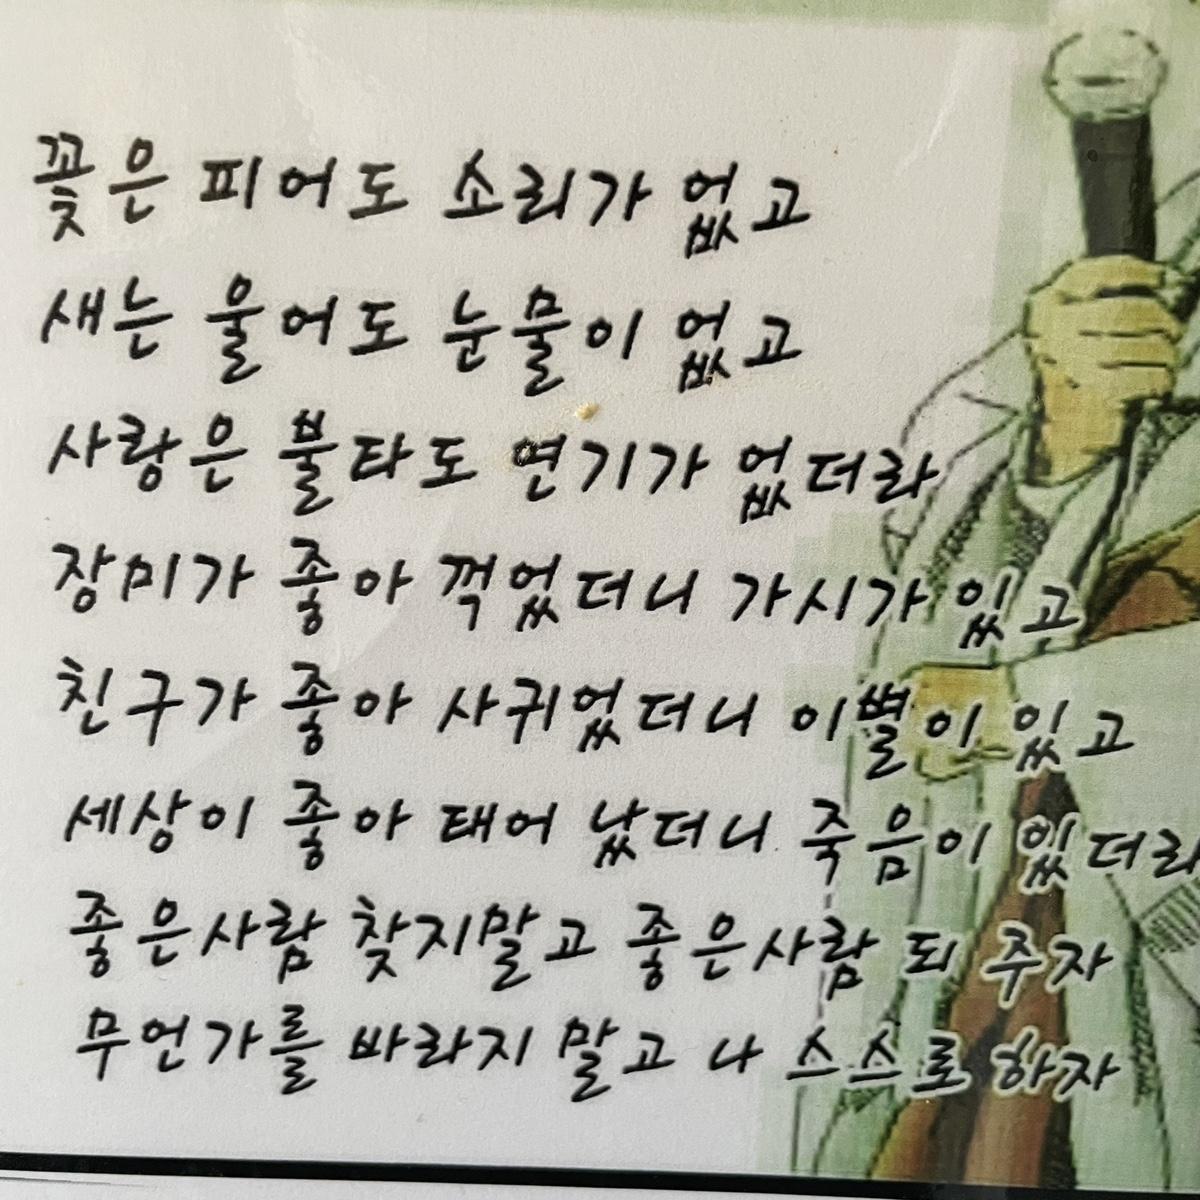 꽃은 피어도 소리가 없고
새는 울어도 눈물이 없고
사랑은 불타도 연기가 없더라
장미가 좋아 꺽었더니 가시가 있고
친구가 좋아 사귀었더니 이별이 있고
세상이 좋아 태어 났더니 죽음이 있더라
좋은사람 찾지말고 좋은사람 되 주자
무언가를 바라지 말고 나 스스로 하자